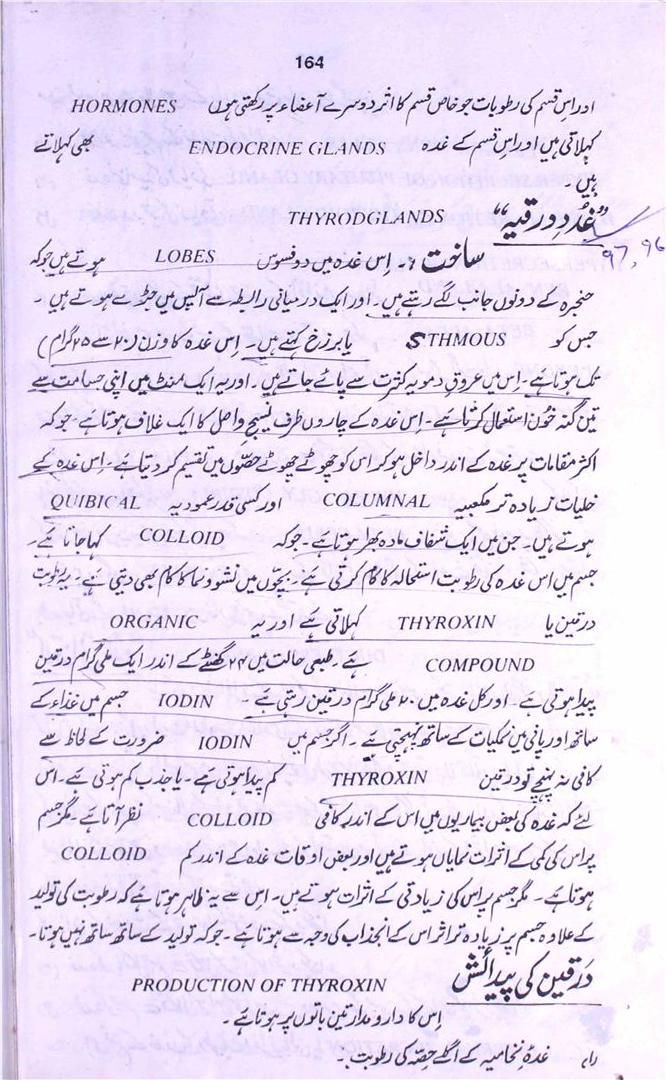 164
اور اس قسم کی رطوبات جو خاص قسم کا اثر دوسرے آعضاء پر رکھتی ہوں HORMONES
کہلاتی ہیں اور اس قسم کے غدہ ENDOCRINE GLANDS بھی کہلاتے
ہیں۔
”غدہ درقیہ“ THYRODGLANDS
97, 96
ساخت :۔ اس غدہ میں دو فصوص LOBES ہوتے ہیں جو کہ
حنجرہ کے دونوں جانب لگے رہتے ہیں۔ اور ایک درمیانی رابطہ سے آپس میں جڑے ہوتے ہیں۔
جس کو STHMOUS یا برزخ کہتے ہیں۔ اس غدہ کا وزن (۲۰ سے ۲۵ گرام)
تک ہوتا ہے۔ اس میں عروقِ دمویہ کثرت سے پائے جاتے ہیں۔ اور یہ ایک منٹ میں اپنی جسامت سے
تین گنہ خُون استعمال کرتا ہے۔ اس غدہ کے چاروں طرف نسیج واصل کا ایک غلاف ہوتا ہے۔ جو کہ
اکثر مقامات پر غدہ کے اندر داخل ہو کر اس کو چھوٹے چھوٹے حصّوں میں تقسیم کر دیتا ہے۔ اس غدہ کے
خلیات زیادہ تر مکعبیہ COLUMNAL اور کسی قدر عمودیہ QUIBICAL
ہوتے ہیں۔ جن میں ایک شفاف مادہ بھرا ہوتا ہے۔ جو کہ COLLOID کہا جاتا ہے۔
جسم میں اس غدہ کی رطوبت استحالہ کا کام کرتی ہے۔ بچوں میں نشو و نما کا کام بھی دیتی ہے۔ یہ رطوبت
درقین یا THYROXIN کہلاتی ہے اور یہ ORGANIC
COMPOUND ہے۔ طبعی حالت میں ۲۴ گھنٹے کے اندر ایک ملی گرام درقین
پیدا ہوتی ہے۔ اور کل غدہ میں ۲۰ ملی گرام درقین رہتی ہے۔ IODIN جسم میں غذاء کے
ساتھ اور پانی میں نمکیات کے ساتھ پہنچتی ہے۔ اگر جسم میں IODIN ضرورت کے لحاظ سے
کافی نہ پہنچے تو درقین THYROXIN کم پیدا ہوتی ہے۔ یا جذب کم ہوتی ہے۔ اس
لئے کہ غدہ کی بعض بیماریوں میں اس کے اندر کافی COLLOID نظر آتا ہے۔ مگر جسم
پر اس کی کمی کے اثرات نمایاں ہوتے ہیں اور بعض اوقات غدہ کے اندر کم COLLOID
ہوتا ہے۔ مگر جسم پر اس کی زیادتی کے اثرات ہوتے ہیں۔ اس سے یہ ظاہر ہوتا ہے کہ رطوبت کی تولید
کے علاوہ جسم پر زیادہ تر اثر اس کے انجذاب کی وجہ سے ہوتا ہے۔ جو کہ تولید کے ساتھ ساتھ نہیں ہوتا۔
درقین کی پیدائش PRODUCTION OF THYROXIN
اس کا دار و مدار تین باتوں پر ہوتا ہے۔
(۱) غدۂ نخامیہ کے اگلے حِصّہ کی رطوبت :۔